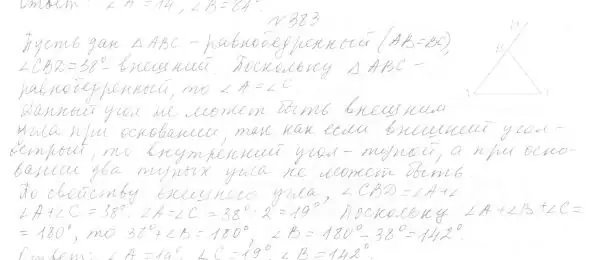 Ответ: ∠A = 14°, ∠B = 64°.
№383
Пусть дан △ABC – равнобедренный (AB=BC),
∠CBD=38° – внешний. Поскольку △ABC –
равнобедренный, то ∠A=∠C
Данный угол не может быть внешним
угла при основании, так как если внешний угол –
острый, то внутренний угол – тупой, а при осно-
вании два тупых угла не может быть.
По свойству внешнего угла, ∠CBD=∠A+∠
∠A+∠C=38°. ∠A=∠C=38°:2=19°. Поскольку ∠A+∠B+∠C=
=180°, то 38°+∠B=180°, ∠B=180°–38°=142°.
Ответ: ∠A=19°, ∠C=19°, ∠B=142°.